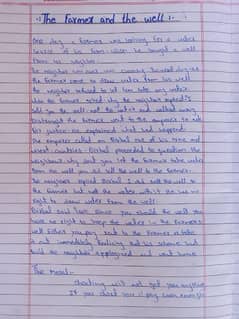 The Farmer and the well :-
One day a farmer was looking for a water
source of his farm when he bought a well
from his neighbor.
The neighbor was cunning the next day as
the farmer came to draw water from his well
the neighbor refused to let him take any water.
when the farmer asked why the neighbor replied "I
sold you the well not the water and walked away
Distraught the farmer went to the emperor to ask
for justice he explained what had happened.
The emperor called on Birbal one of his nine and
wisest courtiers. Birbal proceeded to question the
neighbour why dont you let the farmer take water
from the well you did sell the well to the farmer.
The neighbor replied Birbal I did sell the well to
the farmer but not the water within it he has no
right to draw water from the well.
Birbal said look since you sold the well you
have no right to keep the water in the farmer's
well Either you pay rent to the farmer or take
it out immediately Realizing that his scheme had
failed the neighbor apologized and went home
The moral:-
cheating will not get you anything
If you cheat you'll pay soon enough